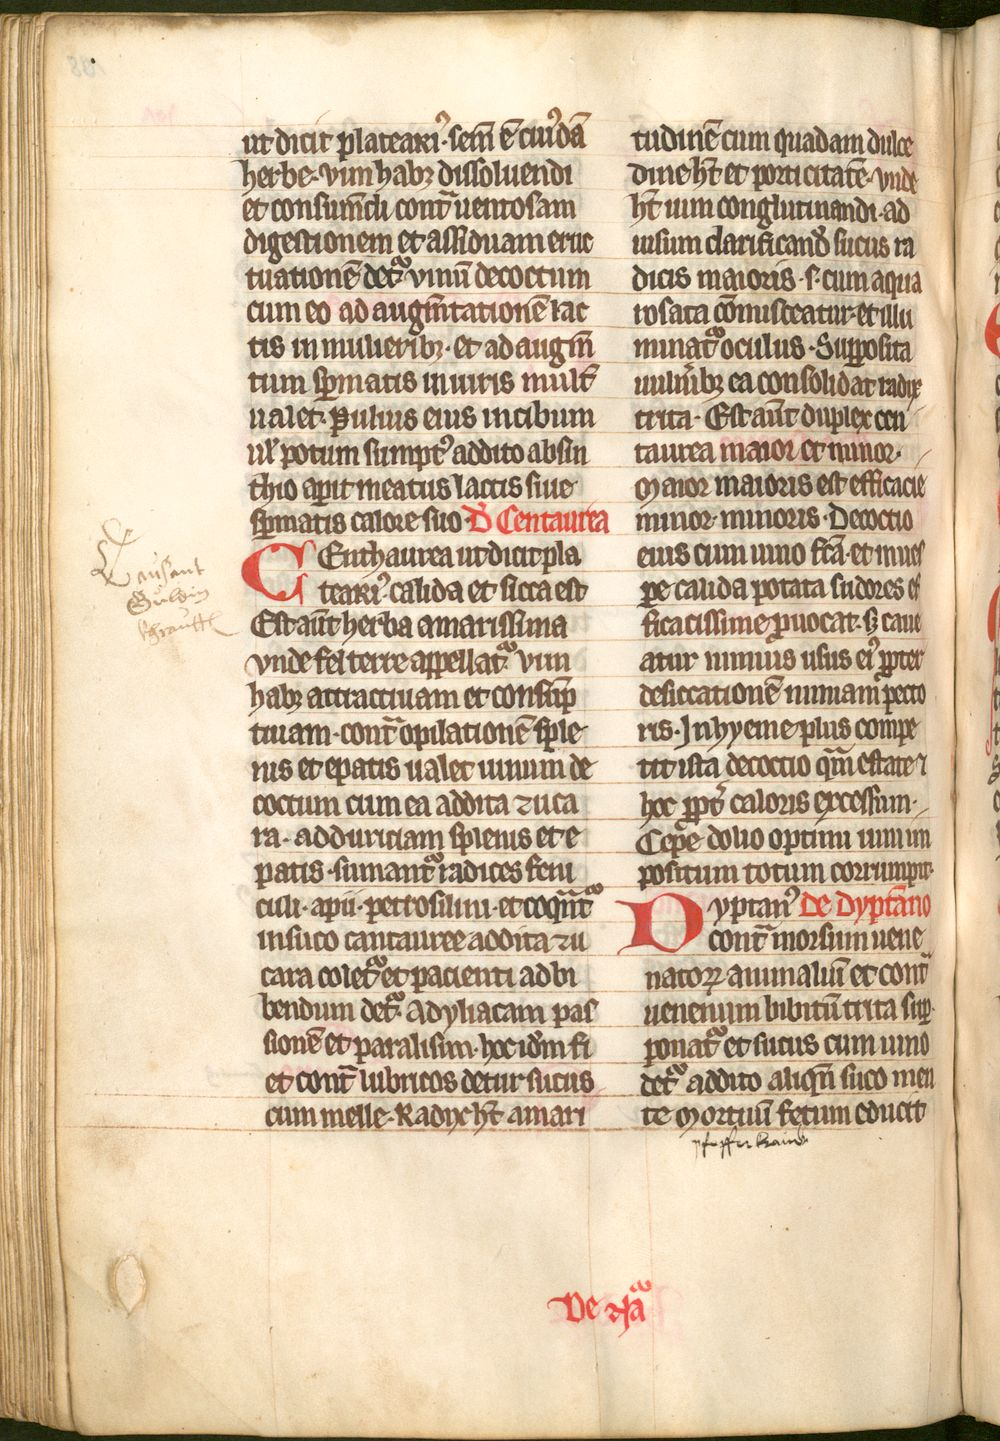 ut dicit plateariꝰ · sem̄ ē cuiꝰdā
herbe · vim habꝫ dissoluendi
et consumēdi cont̄ uentosam
digestionem et assiduam eruc
tuationē det᷑ vinū decoctum
cum eo ad augm̄tationē lac
tis in mulieribꝫ · et ad augm̄
tum spermatis in uiris mult̄
ualet · Puluis eius in cibum
ul̕ potum sumptꝰ addito absin
thio aperit meatus lactis siue
spermatis calore suo · D̄ Centaurea
CEnthaurea ut dicit pla
teariꝰ calida et sicca est
Est aūt herba amarissima
vnde fel terre appellat᷑ vim
habꝫ attractiuam et consūp
tiuam · cont̄ opilationē sple
nis et epatis ualet uinum de
coctum cum ea addita zuca
ra · ad duriciam splenis et e
patis · sumant᷑ radices feni
culi · apii · petrosilini · et coqn̄t᷑
in suco cantauree addita zu
cara colet᷑ et pacienti ad bi
bendum det᷑ · Ad yliacam pas
sionē et paralisim · hoc idem fi
et cont̄ lubricos detur sucus
cum melle · Radix ht̄ amari
tudinē cum quadam dulce
dine ht̄ et porticitatē · vnde
ht̄ uim conglutinandi · ad
uisum clarificand̄ sucus ra
dicis maioris · s · cum aqua
rosata cōmisceatur · et illu
minat᷑ oculus · Supposita
uulneribꝫ ea consolidat radix
trita · Est aūt duplex cen
taurea maior et minor ·
Maior maioris est efficacie
minor · minoris · Decoctio
eius cum uino fc̄a · et mues
pe calida potata sudores ef
ficacissime prouocat · sꝫ caue
atur nimius usus eiꝰ propter
desiccationē nimiam pecto
ris · In hyeme plus compe
tit ista decoctio qm̄ estate ⁊
hoc propt̄ caloris excessum ·
Cepe dolio optimi uini im
positum totum corrumpit ·
Dyptanꝰ de Dyptāno
cont̄ morsum uene
natoꝝ animaliū et cont̄
uenenum bibitū trita super
ponat᷑ et sucus cum uino
det᷑ addito aliqn̄ suco men
te Mortuū fetum educit
Tausant
Guldin
khrautt
pfeffer kraut
De ⁊ḣa